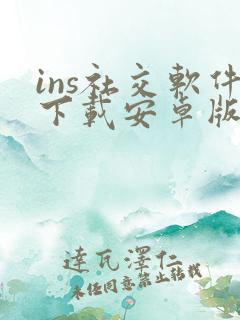 ins社交軟件
下載安卓版
達瓦澤仁
未经同意禁止转载